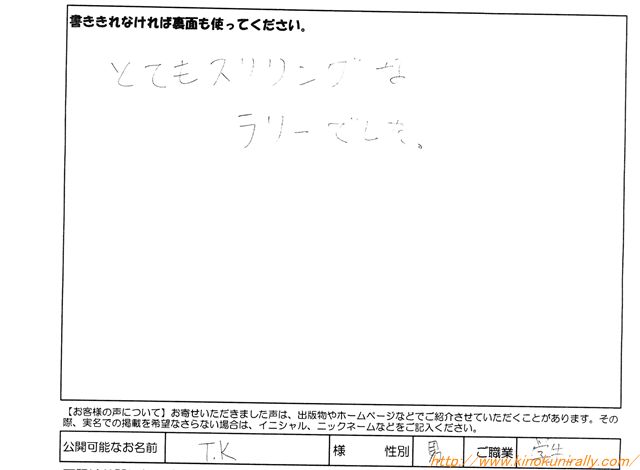 書ききれなければ裏面も使ってください。
とてもスリリングな
ラリーでした。
【お客様の声について】お寄せいただきました声は、出版物やホームページなどでご紹介させていただくことがあります。その
際、実名での掲載を希望なさらない場合は、イニシャル、ニックネームなどをご記入ください。
公開可能なお名前 T.K 様 性別 男 ご職業 学生
http://www.kinokunirally.com/